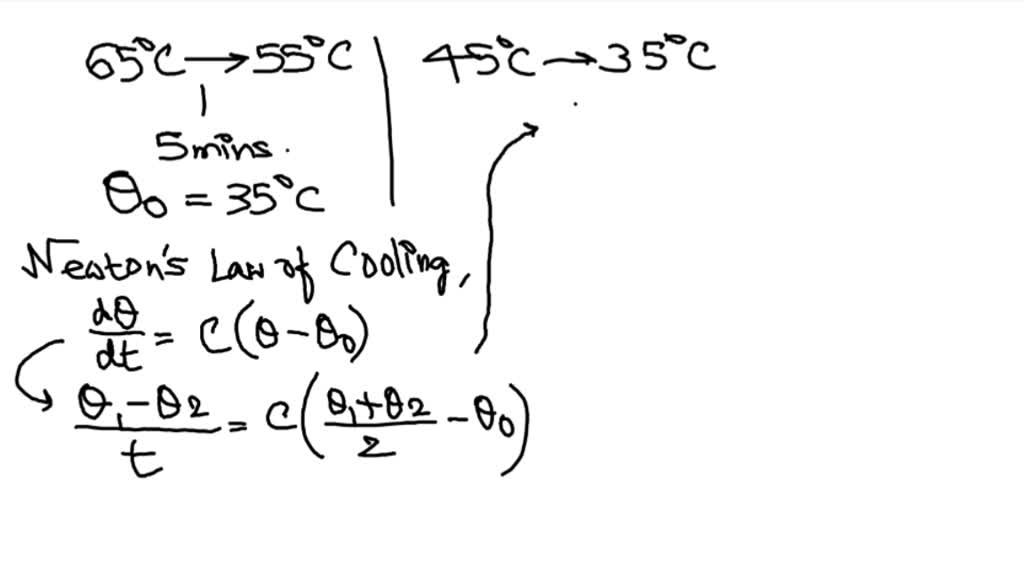 65°C → 55°C
5mins.
θ₀ = 35°C
45°C → 35°C
Newton's Law of Cooling,
dθ/dt = C(θ - θ₀)
(θ₁ - θ₂)/t = C((θ₁ + θ₂)/2 - θ₀)